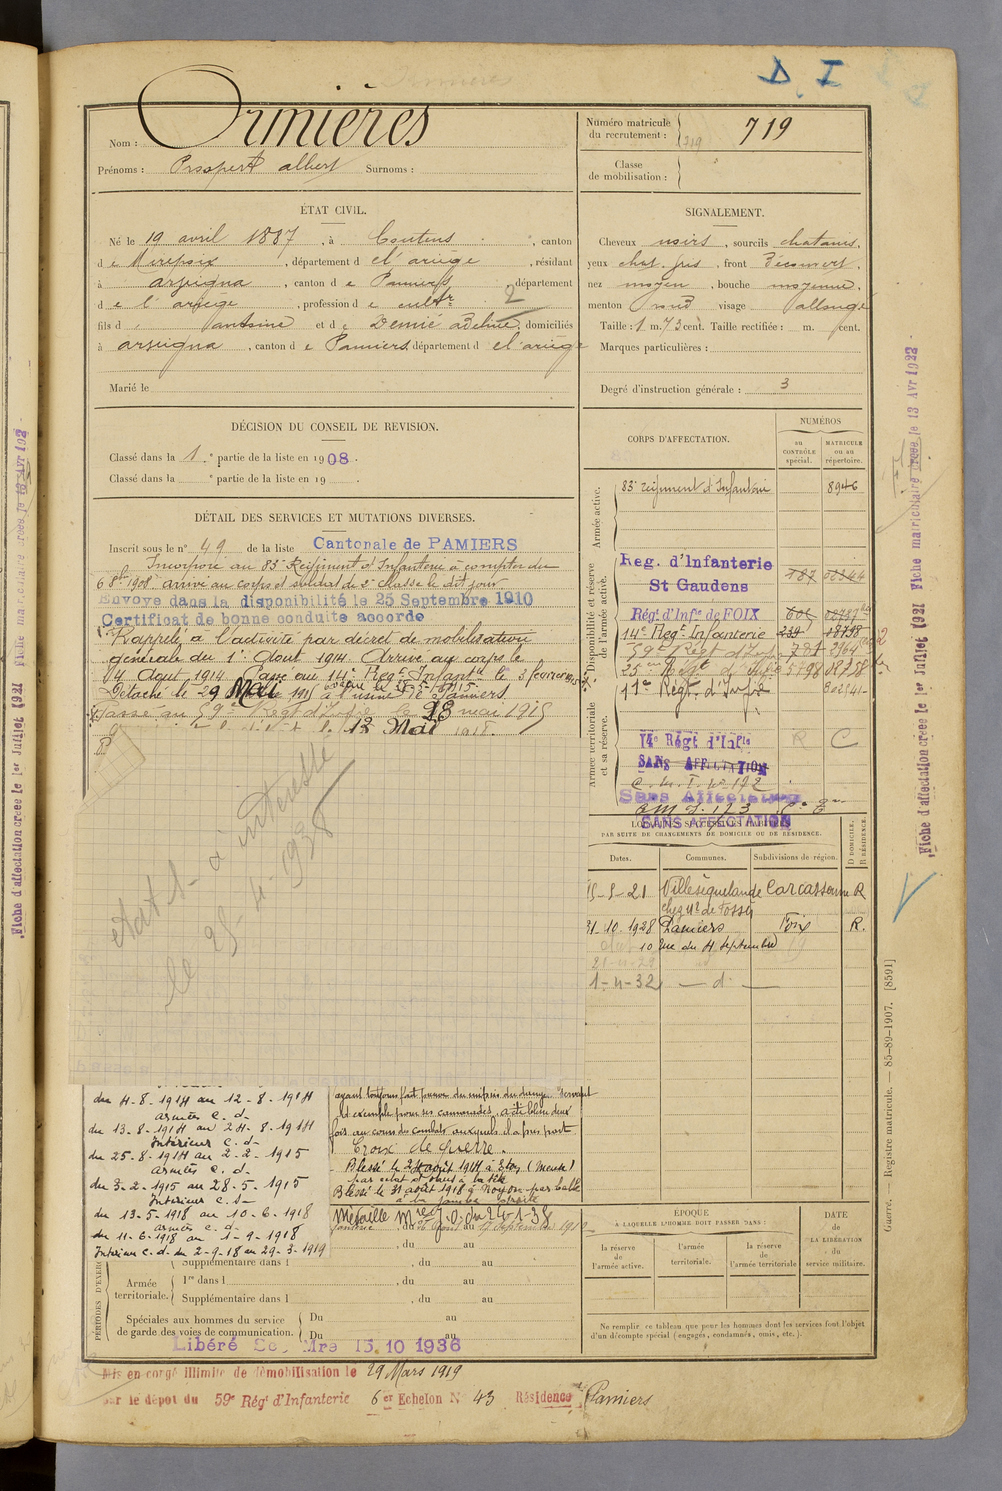 D. I
Nom : Ormières
Prénoms : Prosper Albert Surnoms :
Numéro matricule du recrutement : 719
Classe de mobilisation :
ÉTAT CIVIL.
Né le 19 avril 1887, à Coutens, canton
de Mirepoix, département d el'ariège, résidant
à arvigna, canton de Pamiers département
de l'ariège, profession de cultr 2
fils d' antoine et de Demié adeline, domiciliés
à arvigna, canton de Pamiers, département d el'ariège
Marié le
SIGNALEMENT.
Cheveux noirs, sourcils chatains,
yeux chat. gris, front découvert,
nez moyen, bouche moyenne,
menton rond visage allongé
Taille : 1 m. 73 cent. Taille rectifiée : m. cent.
Marques particulières :
Degré d'instruction générale : 3
DÉCISION DU CONSEIL DE REVISION.
Classé dans la 1re partie de la liste en 1908.
Classé dans la e partie de la liste en 19 .
DÉTAIL DES SERVICES ET MUTATIONS DIVERSES.
Inscrit sous le n° 49 de la liste Cantonale de PAMIERS
Incorporé au 83e Régiment d'Infanterie à compter du
6 8bre 1908 arrivé au corps et soldat de 2e classe le dit jour
Envoyé dans la disponibilité le 25 Septembre 1910
Certificat de bonne conduite accordé
Rappelé à l'activité par décret de mobilisation
générale du 1er Aout 1914 Arrivé au corps le
4 Aout 1914 Passé au 14e Regt Infantie le 3 février 1915
Détaché le 29 Mai 1915 à l'usine de Pamiers
Passé au 59e Regt d'Infie le 23 mai 1915
12 Mai 1918.
à intéressé
le 25-4-1938
CORPS D'AFFECTATION.
NUMÉROS
au contrôle spécial.
matricule ou au répertoire.
Armée active.
83e régiment d'Infanterie 8946
Disponibilité et réserve de l'armée active.
Reg. d'Infanterie St Gaudens 187
Régt d'Infie de FOIX
14e Regt Infanterie 239 18798
59e Regt d'Infie 781 2964
25e Regt d'Infie 5798
11e Regt d'Infie
Armée territoriale et sa réserve.
14e Régt d'Infie R C
SANS AFFECTATION
c. m. I. no 172
Sans Affectation
C M I. 173
SANS AFFECTATION
PAR SUITE DE CHANGEMENTS DE DOMICILE OU DE RÉSIDENCE.
Dates. Communes. Subdivisions de région. D. DOMICILE. R. RÉSIDENCE.
15-5-21 Villesèquelande Carcassonne R
chez Mr de Fosse
31-10-1928 Pamiers Foix R.
10 Rue du 4 Septembre
1-4-32 — d° —
du 4-8-1914 au 12-8-1914
armées c. d-
du 13-8-1914 au 24-8-1914
Intérieur c. d-
du 25-8-1914 au 2-2-1915
armées c. d-
du 3-2-1915 au 28-5-1915
Intérieur c. d-
du 13-5-1918 au 10-6-1918
armées c. d-
du 11-6-1918 au 1-9-1918
Intérieur c. d. du 2-9-18 au 29-3-1919
ayant toujours fait preuve du mépris du danger servant
d'exemple pour ses camarades, a été blessé deux
fois au cours du combats auxquels il a pris part.
Croix de guerre.
Blessé le 24 août 1914 à Eton (Meuse)
par éclat d'obus à la tête
Blessé le 31 août 1918 à Noyon par balle
à la jambe droite
Médaille Mre J. O. du 24-1-38
Supplémentaire dans l , du au
Armée territoriale.
1re dans l , du au
Supplémentaire dans l , du au
Spéciales aux hommes du service de garde des voies de communication.
Du au
Du au
Libéré Ser Mre 15.10 1936
ÉPOQUE
A LAQUELLE L'HOMME DOIT PASSER DANS :
la réserve de l'armée active.
l'armée territoriale.
la réserve de l'armée territoriale
DATE de LA LIBÉRATION du service militaire.
Ne remplir ce tableau que pour les hommes dont les services font l'objet
d'un décompte spécial (engagés, condamnés, omis, etc.).
Mis en congé illimité de démobilisation le 29 Mars 1919
par le dépôt du 59e Régt d'Infanterie 6er Echelon N° 43 Résidence Pamiers
Fiche d'affectation créée le 1er Juillet 1921 Fiche matriculaire créée le 13 Avr 1922
Guerre. — Registre matricule. — 85-89-1907. [8591]